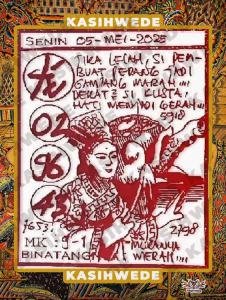 KASIHWEDE
SENIN 05-MEI-2025
JIKA LELAH, SI PEM-
BUAT PEDANG JADI
GAMPANG MARAH...
DEKAT2 SI KUSTA,
HATI MENJADI GERAH...
02
96
43
7653
2798
MK: 9-1
BINATANG
MUKANYA
MERAH...
KASIHWEDE